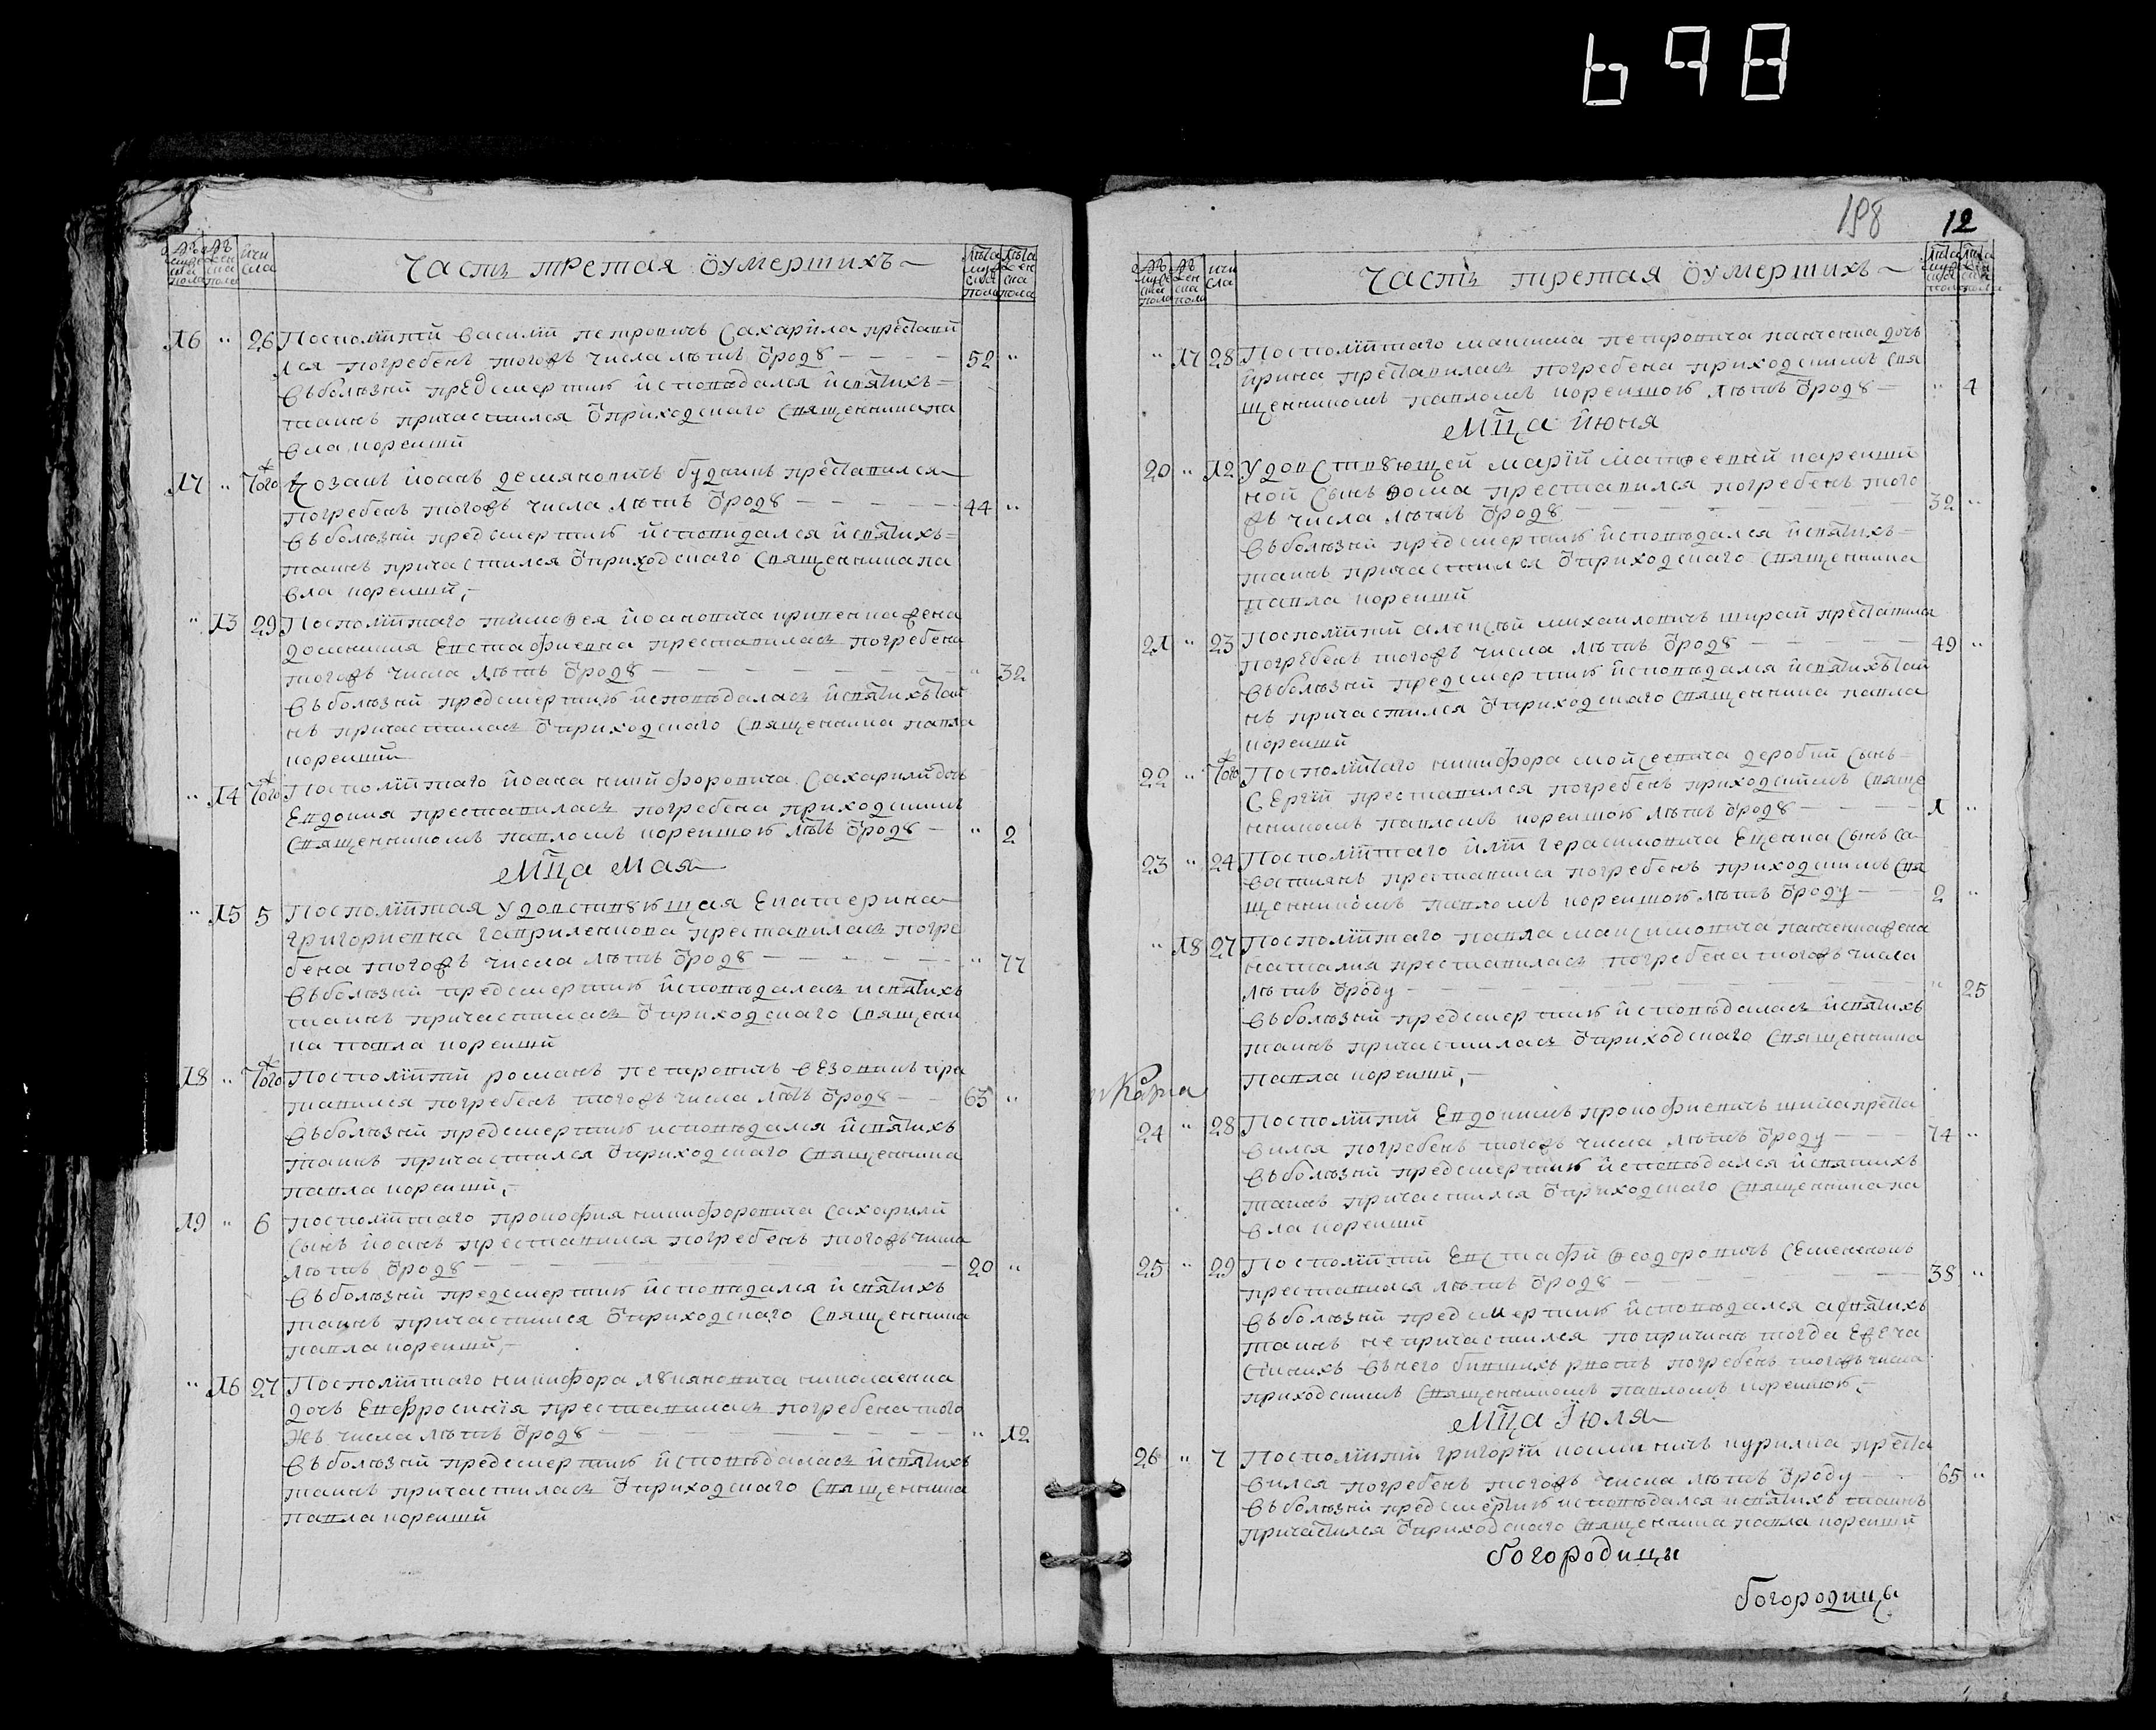 698
Часть третая ŏумершихъ
16 " 26 Посполѣтій василій петровичъ Сахарила преставй
лся погребенъ тогожъ числа лѣтъ ŏроду 52 "
въболѣзнй предсмертнѣ йсповѣдался йсвятихъ
таинъ причастился ŏприходскаго Священника па
вла корейшй
17 " Того Козакъ йоанъ демяновичъ преставился
погребенъ тогожъ числа лѣтъ ŏроду 44 "
въболѣзнй предсмертнѣ йсповидался йсвятихъ
таинъ причастился ŏприходскаго Священника па
вла корейшй
" 13 29 Посполѣтаго тимоѳея йоановича жена
домникия Евстафиевна преставилась погребена
тогожъ числа лѣтъ ŏроду " 32
въболѣзнй предсмертнѣ йсповѣдалась йсвятихъ таи
нъ причастилась ŏприходскаго Священника павла
корейшй
" 14 Того Посполѣтаго йоана никйфоровича Сахарилй дочь
Евдокия преставилась погребена приходскимъ
Священникомъ павломъ корейшою лѣтъ ŏроду " 2
Мца Мая
" 15 5 Посполѣтая удовствующая Екатерина
григориевна гавриленкова преставилась погре
бена тогожъ числа лѣтъ ŏроду " 77
въболѣзнй предсмертнѣ йсповѣдалась исвятихъ
таинъ причастилась ŏприходскаго Священи
ка павла корейшй
18 " Того Посполѣтій романъ петровичъ прес
тавился погребенъ тогожъ числа лѣтъ ŏроду 63 "
въболѣзнй предсмертнѣ исповѣдался йсвятихъ
таинъ причастился ŏприходскаго Священника
павла корейшй
19 " 6 Посполѣтаго прокофия никифоровича Сахарилй
Сынъ йоанъ преставился погребенъ тогожъ числа
лѣтъ ŏроду 20 "
въболѣзнй предсмертнѣ йсповѣдался йсвятихъ
таинъ причастился ŏприходскаго Священника
павла корейшй
" 16 27 Посполѣтаго никифора лукяновича николаенка
дочь Евфросинѣя преставилась погребена того
жъ числа лѣтъ ŏроду " 12
въболѣзнй предсмертнѣ йсповѣдалась йсвятихъ
таинъ причастилась ŏприходскаго Священника
павла корейшй
198 12
Часть третая ŏумершихъ
" 17 28 Посполѣтаго максима петровича панченка дочь
йрина преставилась погребена приходскимъ Свя
щенникомъ павломъ корейшою лѣтъ ŏроду " 4
Мца йюня
20 " 12 Удовствующей марїй матѳеевнй
Сынъ ѳома преставился погребенъ того
жъ числа лѣтъ ŏроду 32 "
въболѣзнй предсмертнѣ йсповѣдался йсвятихъ
таинъ причастился ŏприходскаго Священника
павла корейшй
21 " 23 Посполѣтій алексѣй михайловичъ ширай преставился
погребенъ тогожъ числа лѣтъ ŏроду 49 "
въболѣзнй предсмертнѣ йсповѣдался йсвятихъ таи
нъ причастился ŏприходскаго Священника павла
корейшй
22 " Того Посполѣтаго никифора мойсеевича Сынъ
Сергїй преставился погребенъ приходскимъ Свяще
нникомъ павломъ корейшою лѣтъ ŏроду 1 "
23 " 24 Посполѣтаго йлїй герасимовича Ещенка Сынъ Са
востиянъ преставился погребенъ приходскимъ Свя
щенникомъ павломъ корейшою лѣтъ ŏроду 2 "
" 18 27 Посполѣтаго павла максимовича панченка жена
наталия преставилась погребена тогожъ числа
лѣтъ ŏроду " 25
въболѣзнй предсмертнѣ йсповѣдалась йсвятихъ
таинъ причастилась ŏприходскаго Священника
павла корейшй
24 " 28 Посполѣтій Евдокимъ прокофиевичъ шила преста
вился погребенъ тогожъ числа лѣтъ ŏроду 74 "
въболѣзнй предсмертнѣ йсповѣдался йсвятихъ
таинъ причастился ŏприходскаго Священника па
вла корейшй
25 " 29 Посполѣтій Евстафїй ѳеодоровичъ
преставился лѣтъ ŏроду 38 "
въболѣзнй предсмертнѣ йсповѣдался асвятихъ
таинъ непричастился попричинѣ тогда Ежеча
стнихъ внего бившихъ рвотъ погребенъ тогожъ числа
приходскимъ Священникомъ павломъ корейшою
Мца Їюля
26 " 7 Посполѣтій григорїй курилка преста
вился погребенъ тогожъ числа лѣтъ ŏроду 65 "
въболѣзнй предсмертнѣ исповѣдался исвятихъ таинъ
причастился ŏприходскаго Священника павла корейшй
богородицы
богородицы